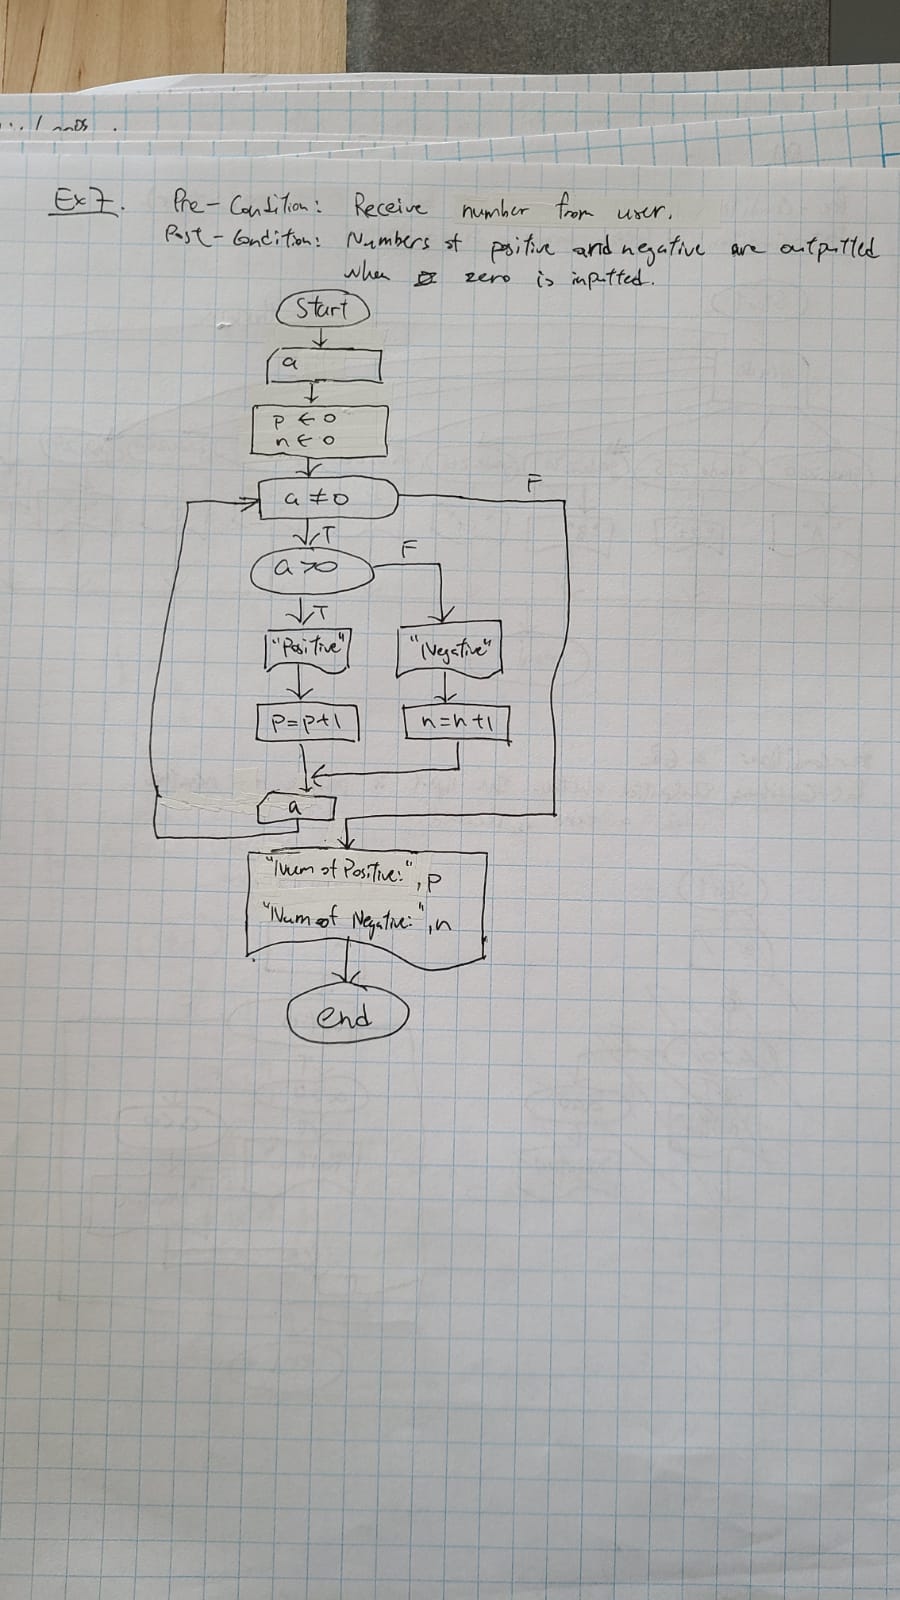 Ex 7. Pre-Condition: Receive number from user.
Post-Condition: Numbers of positive and negative are outputted
when zero is inputted.
Start
a
p ← 0
n ← 0
a ≠ 0
F
T
a > 0
F
T
"Positive"
"Negative"
p=p+1
n=n+1
a
"Num of Positive:", p
"Num of Negative:", n
end